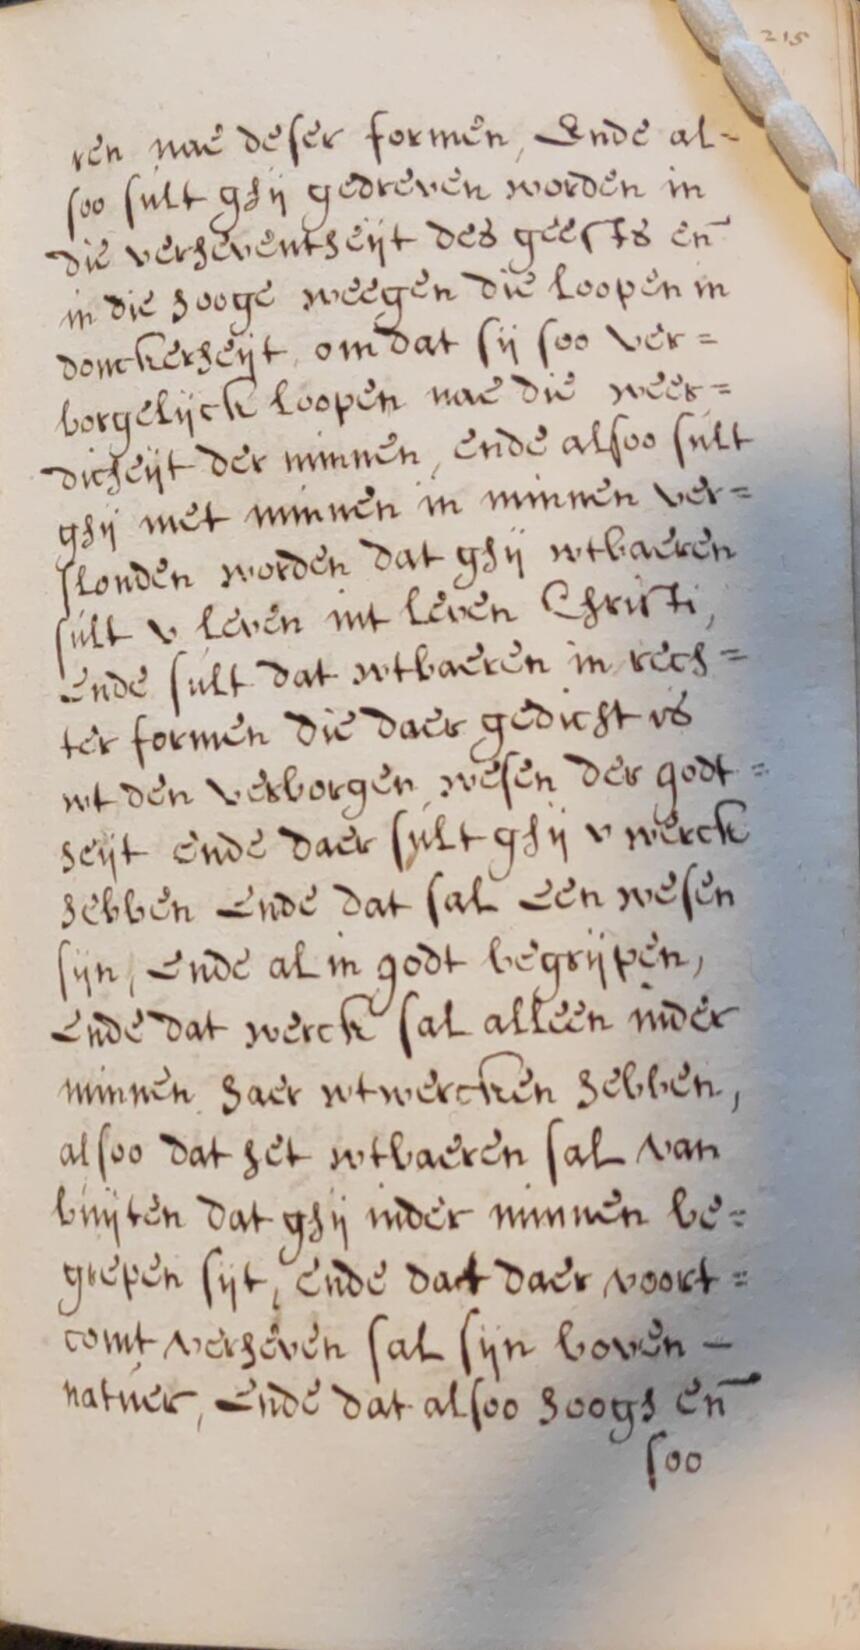 215
ren nae deser formen, Ende al-
soo sult ghij gedreven worden in
die verheventheijt des geests en̄
in die hooge weegen die loopen in
donckerheijt, om dat sij soo ver=
borgelijck loopen nae die weer=
dicheijt der minnen, ende alsoo sult
ghij met minnen in minnen ver=
slonden worden dat ghij wtbaeren
sult v leven int leven Christi,
Ende sult dat wtbaeren in rech=
ter formen die daer gedicht is
wt den verborgen wesen der godt=
heijt ende daer sult ghij v werck
hebben Ende dat sal Een wesen
sijn, Ende al in godt begrijpen,
Ende dat werck sal alleen inder
minnen haer wtwercken hebben,
alsoo dat het wtbaeren sal van
buijten dat ghij inder minnen be=
grepen sijt, ende dat daer voort=
comt verheven sal sijn boven -
natuer, Ende dat alsoo hoogh en̄
soo